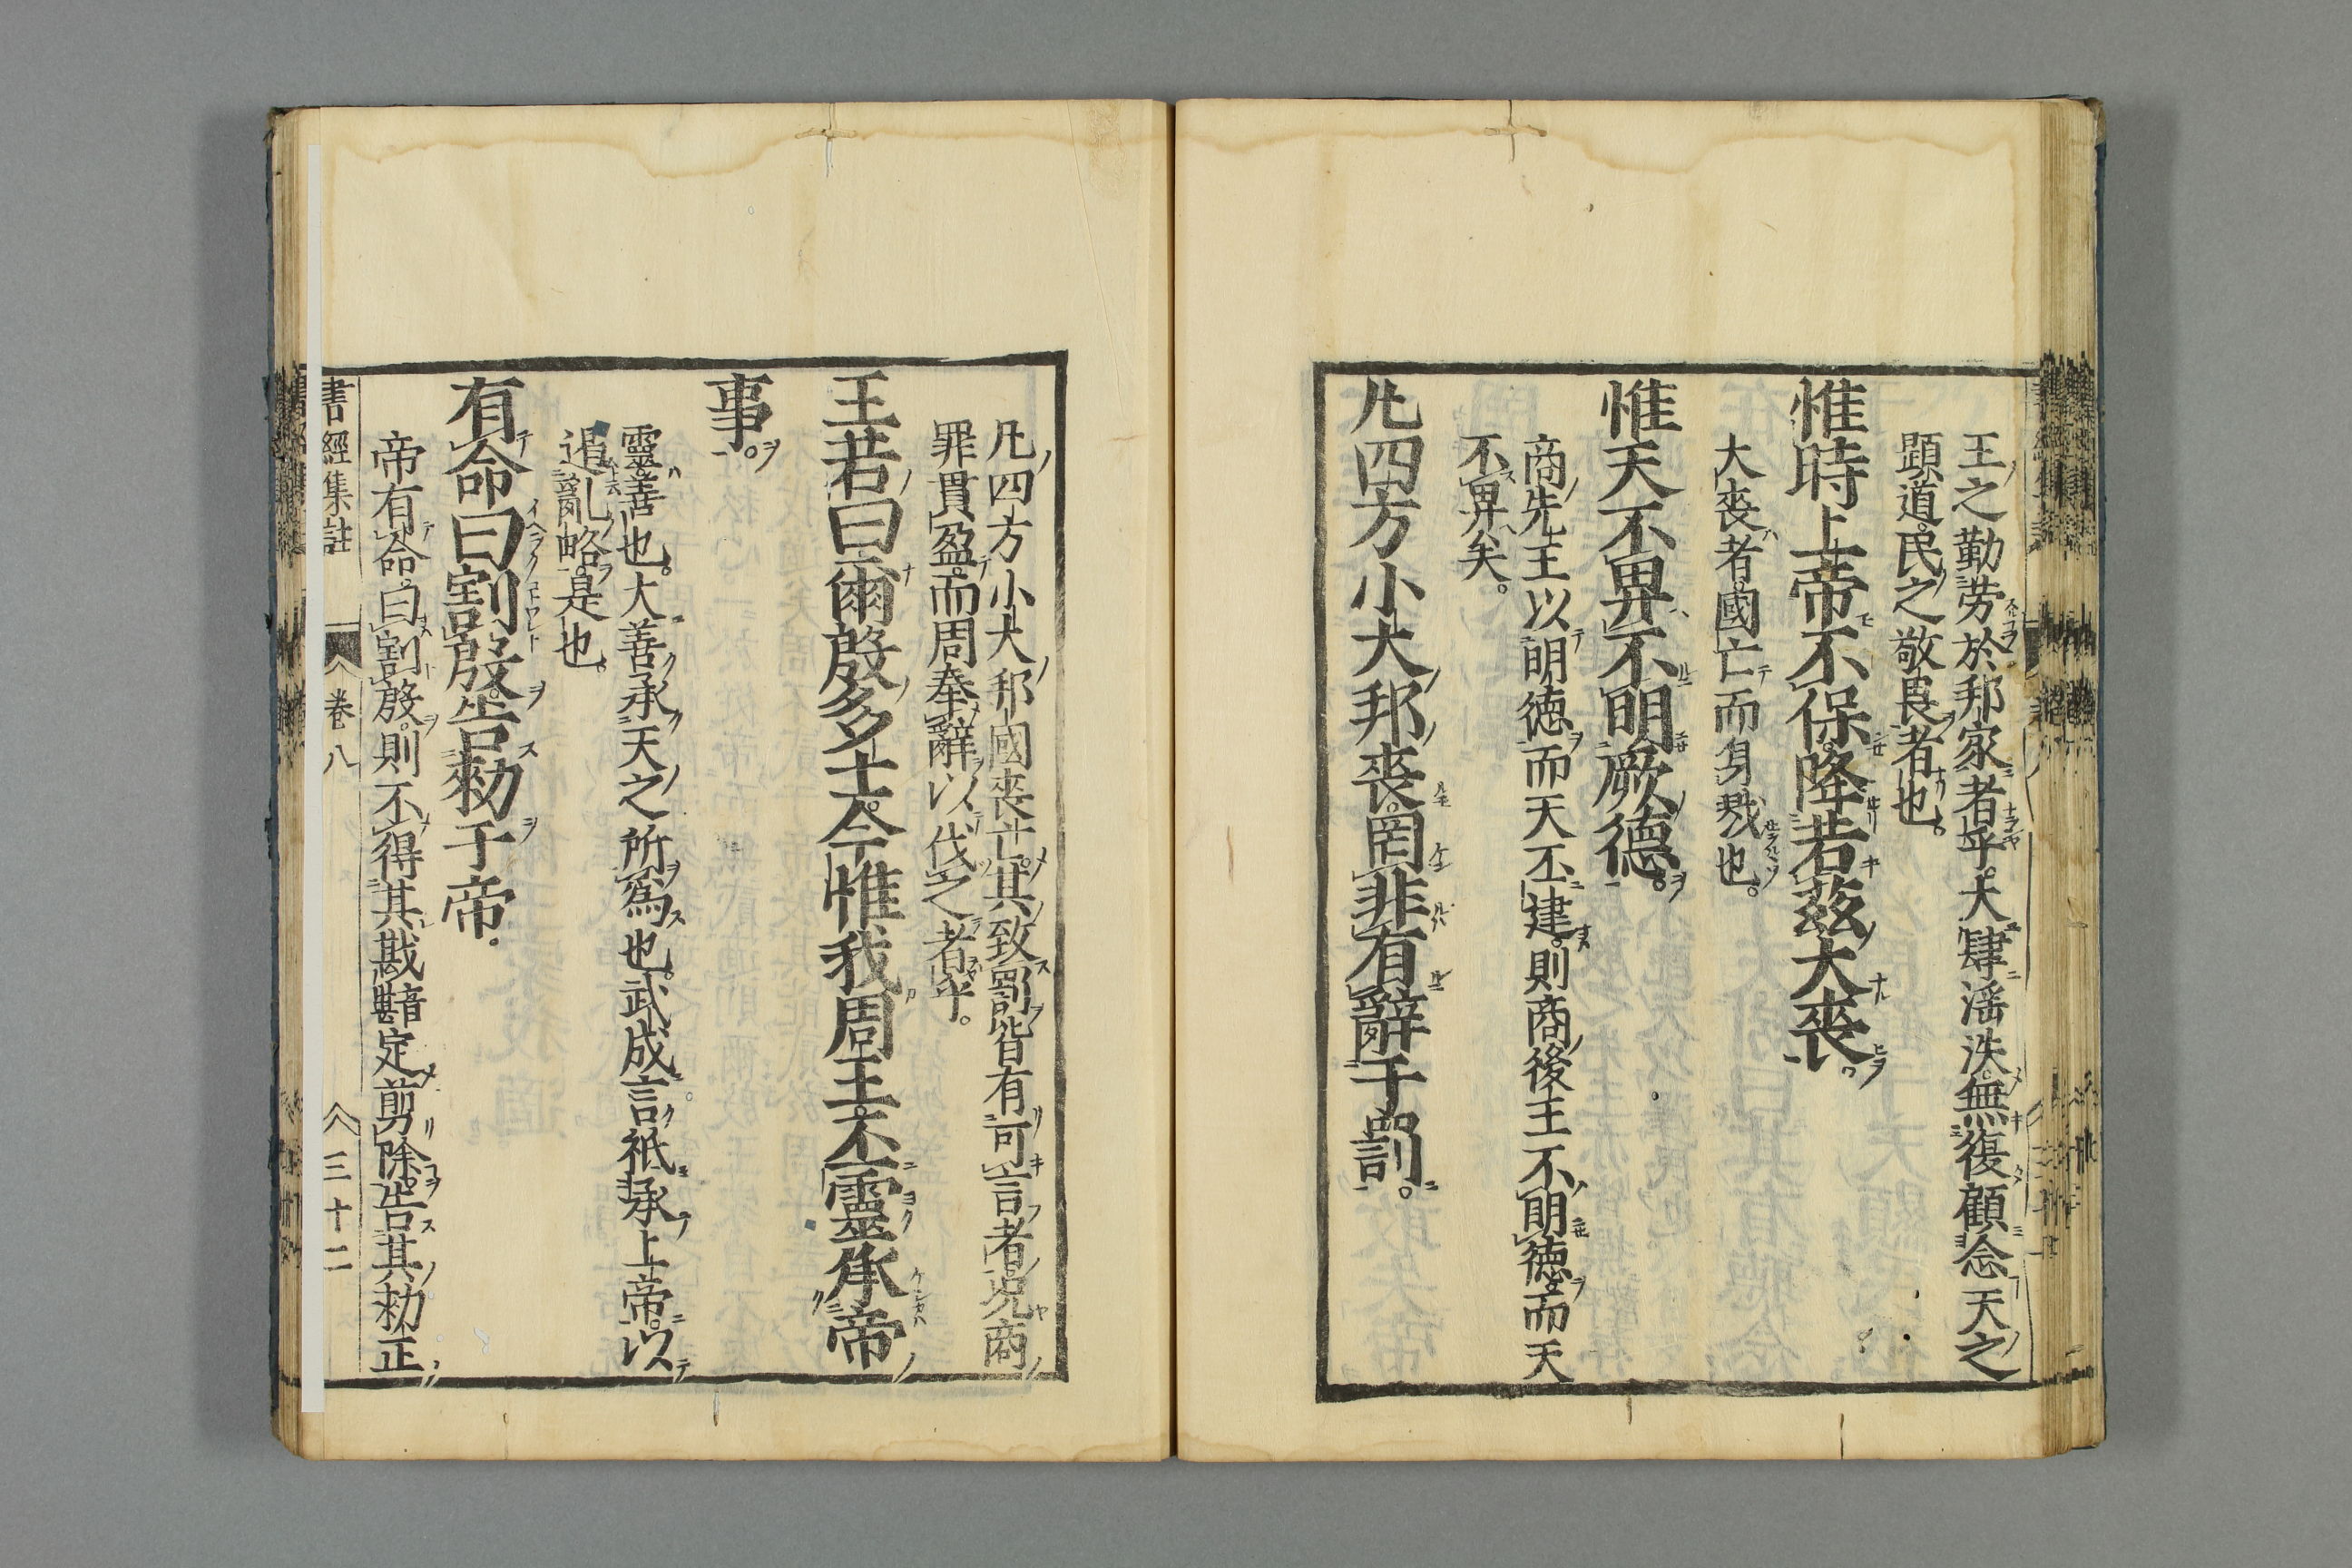 王之勤労於邦家者乎。大肆淫泆。無復顧念天之
顕道。民之敬畏者也。
惟時上帝不保。降若茲大喪。
大喪者。國亡而身戮也。
惟天不畀。不明厥德。
商先王以明德而天丕建。則商後王不明德。而天
不畀矣。
凡四方小大邦喪。罔非有辭于罰。
凡四方小大邦國喪亡。其致罰皆有可言者。況商
罪貫盈。而周奉辭以伐之者乎。
王若曰。爾殷多士。今惟我周王。丕靈承帝
事。
靈善也。大善承天之所爲也。武成言祇承上帝。以
遏亂略。是也。
有命曰。割殷。告勑于帝。
帝有命。曰割殷。則不得其戡黬定剪除。告其勑正
書經集註 卷八 三十二